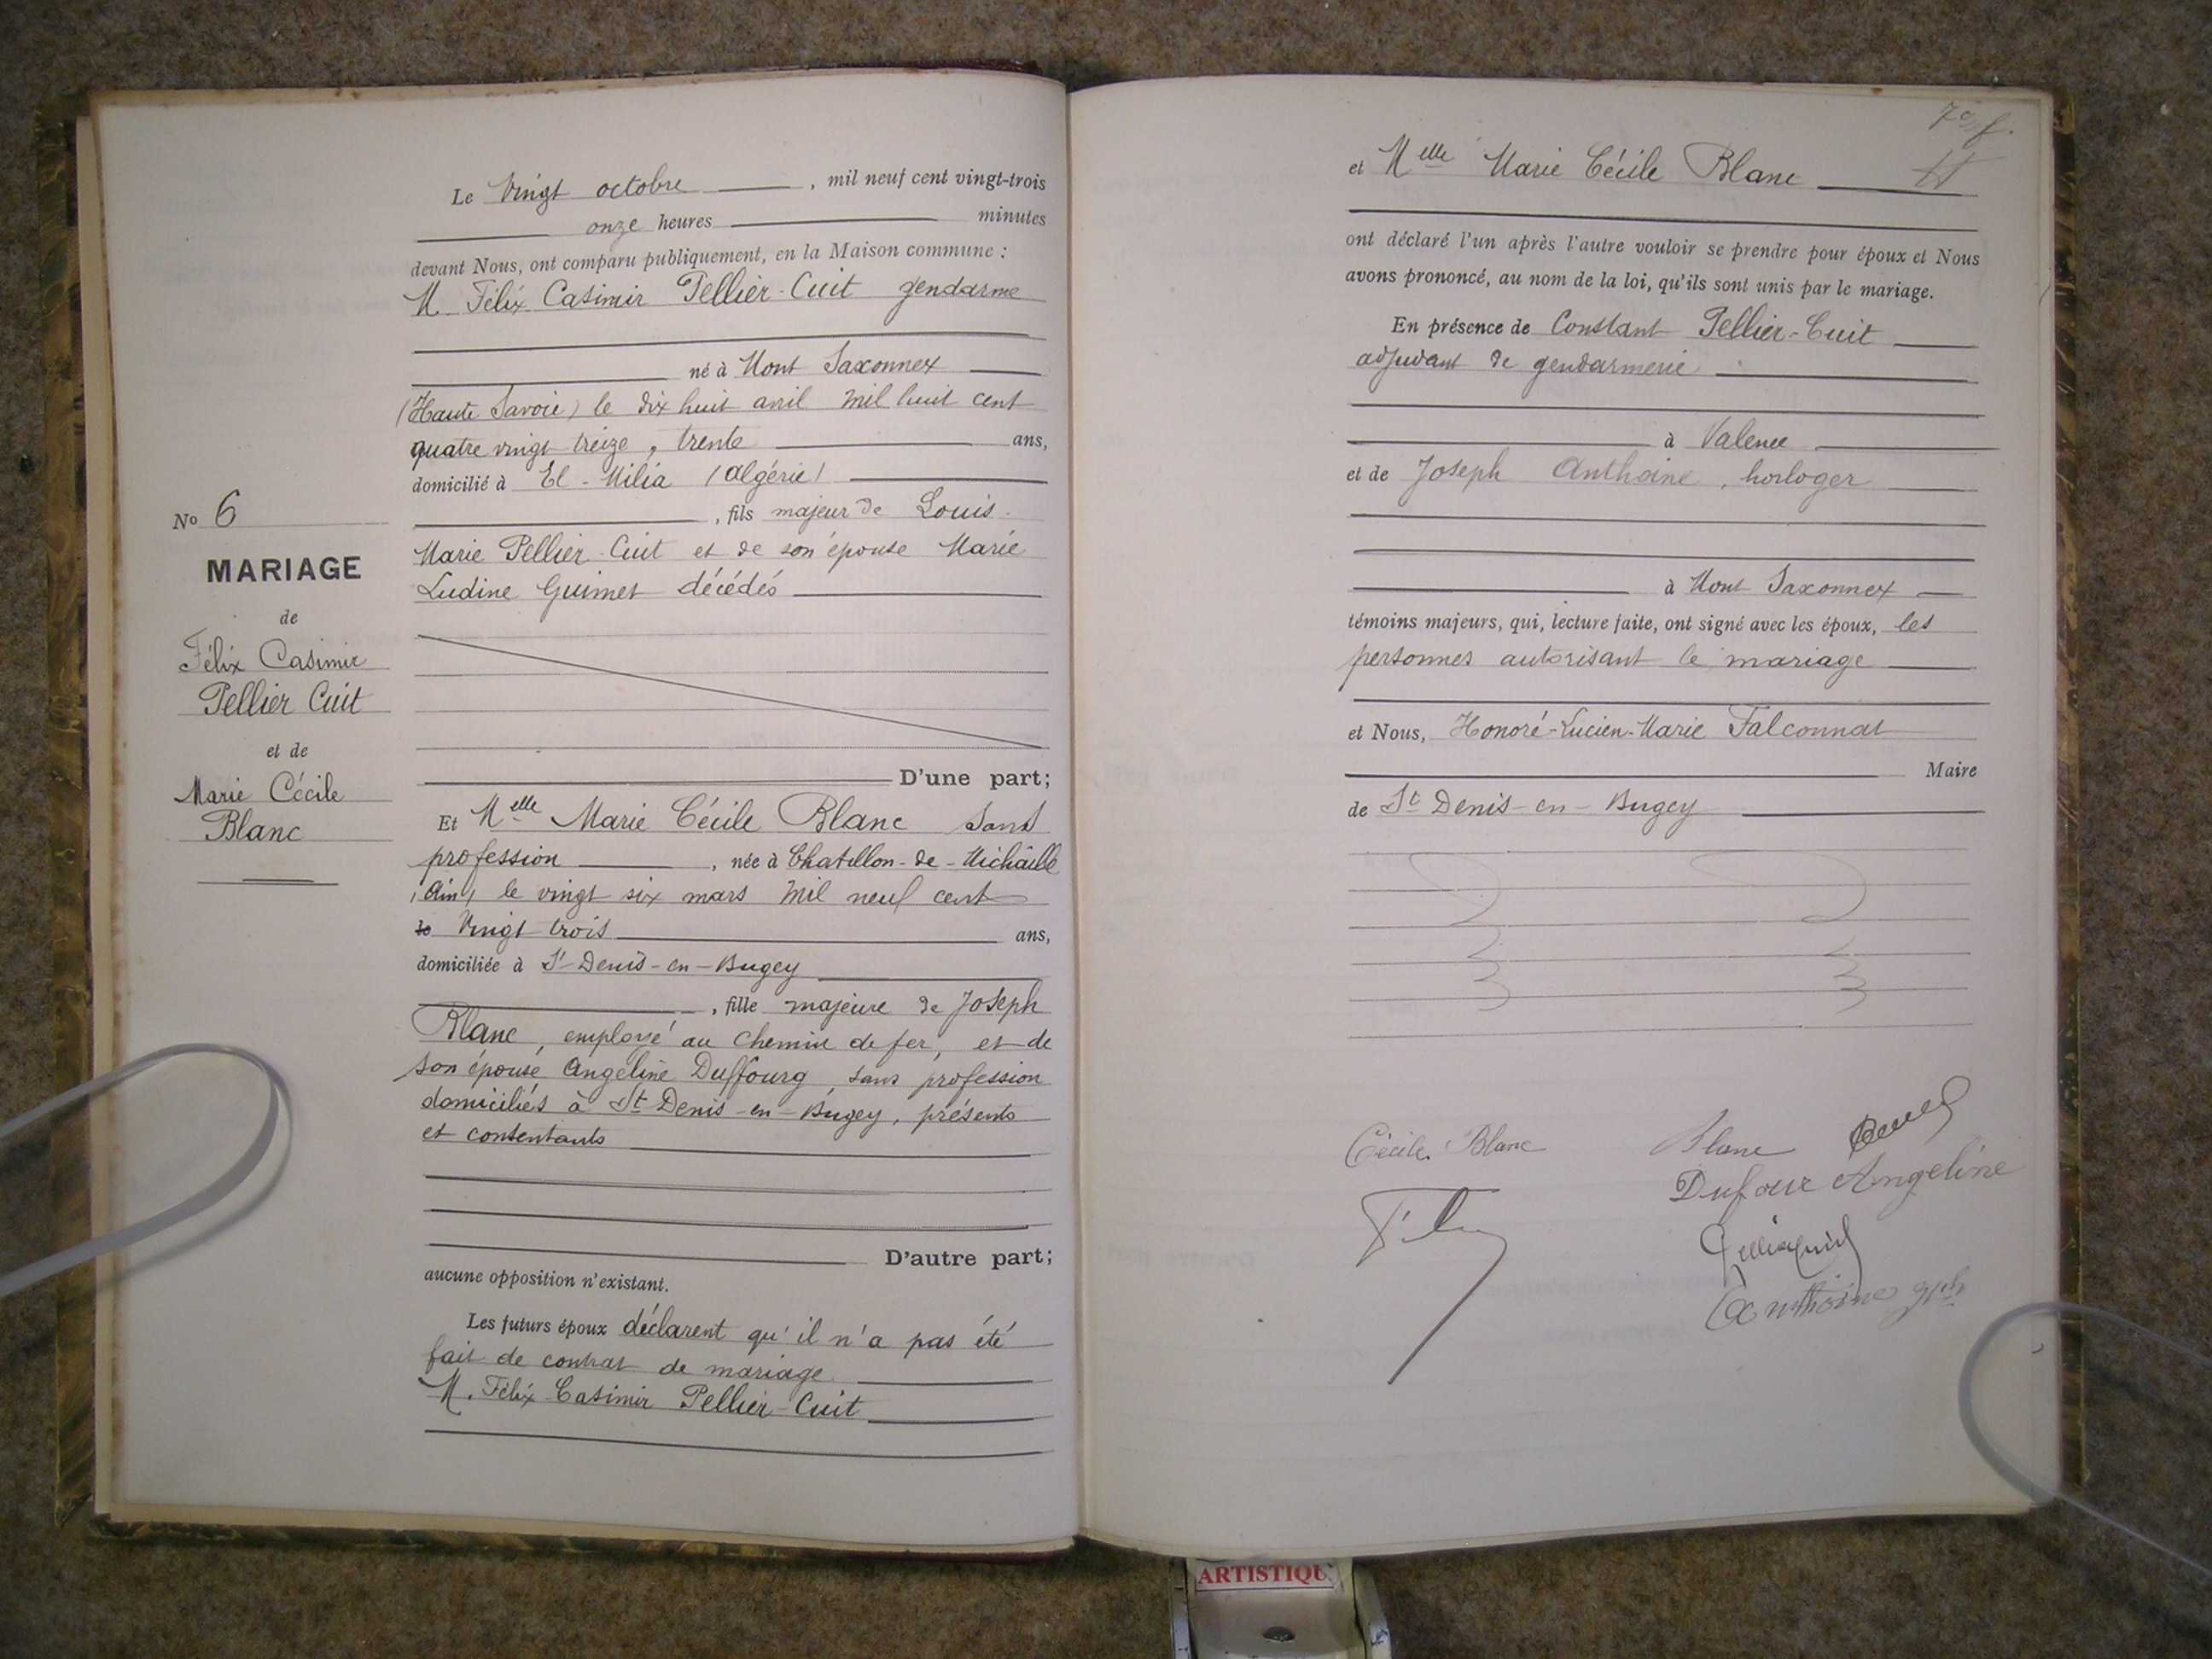 Le Vingt octobre, mil neuf cent vingt-trois
onze heures minutes
devant Nous, ont comparu publiquement, en la Maison commune :
M. Félix Casimir Pellier-Cuit gendarme
né à Mont Saxonnex
(Haute Savoie) le dix huit avril mil huit cent
quatre vingt treize, trente ans,
domicilié à El-Milia (Algérie)
, fils majeur de Louis-
Marie Pellier-Cuit et de son épouse Marie
Ludine Guimet décédés
No 6
MARIAGE
de
Félix Casimir
Pellier Cuit
et de
Marie Cécile
Blanc
D'une part;
Et Melle Marie Cécile Blanc sans
profession, née à Chatillon-de-Michaille
(Ain) le vingt six mars mil neuf cent
Vingt trois ans,
domiciliée à St-Denis-en-Bugey
, fille majeure de Joseph
Blanc, employé au Chemin de fer, et de
son épouse Angeline Duffourg, sans profession
domiciliés à St Denis-en-Bugey, présents
et consentants
D'autre part;
aucune opposition n'existant.
Les futurs époux déclarent qu'il n'a pas été
fait de contrat de mariage
M. Félix Casimir Pellier-Cuit
7e f.
et Melle Marie Cécile Blanc
ont déclaré l'un après l'autre vouloir se prendre pour époux et Nous
avons prononcé, au nom de la loi, qu'ils sont unis par le mariage.
En présence de Constant Pellier-Cuit
adjudant de gendarmerie
à Valence
et de Joseph Anthoine, horloger
à Mont Saxonnex
témoins majeurs, qui, lecture faite, ont signé avec les époux, les
personnes autorisant le mariage
et Nous, Honoré-Lucien-Marie Falconnat
Maire
de St Denis-en-Bugey
Cécile Blanc Blanc
Dufour Angeline
Anthoine Jph
ARTISTIQU